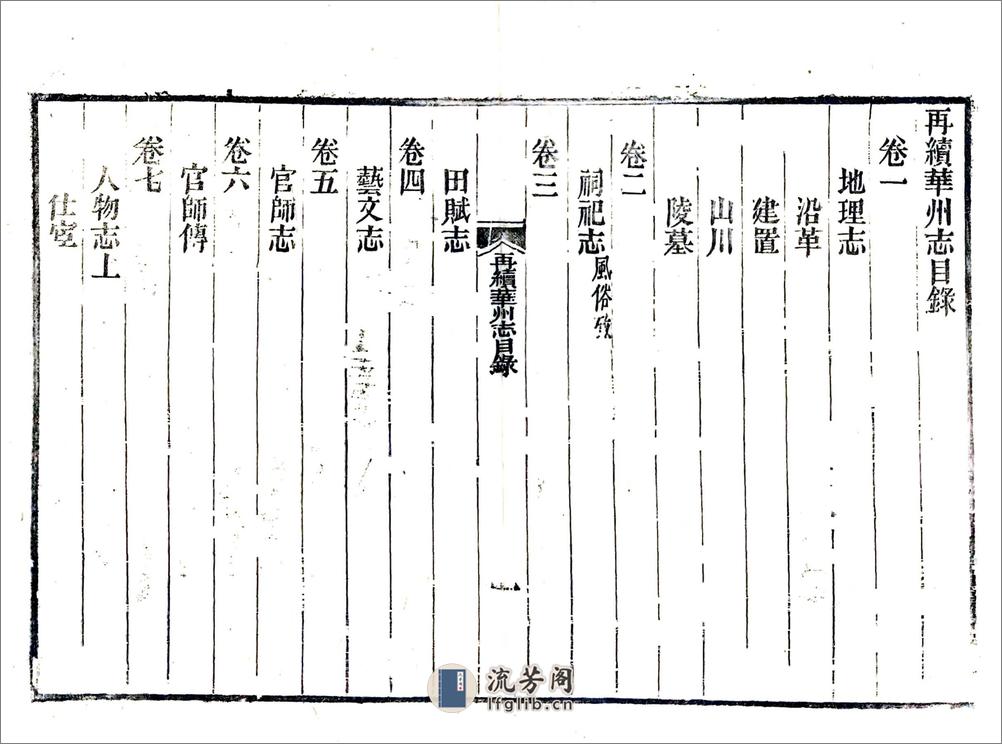 再續華州志目錄
卷一
地理志
沿革
建置
山川
陵墓
卷二
祠祀志 風俗攷
卷三
再續華州志目錄
一
田賦志
卷四
藝文志
卷五
官師志
卷六
官師傳
卷七
人物志上
仕宦
流芳阁
lfglib.cn